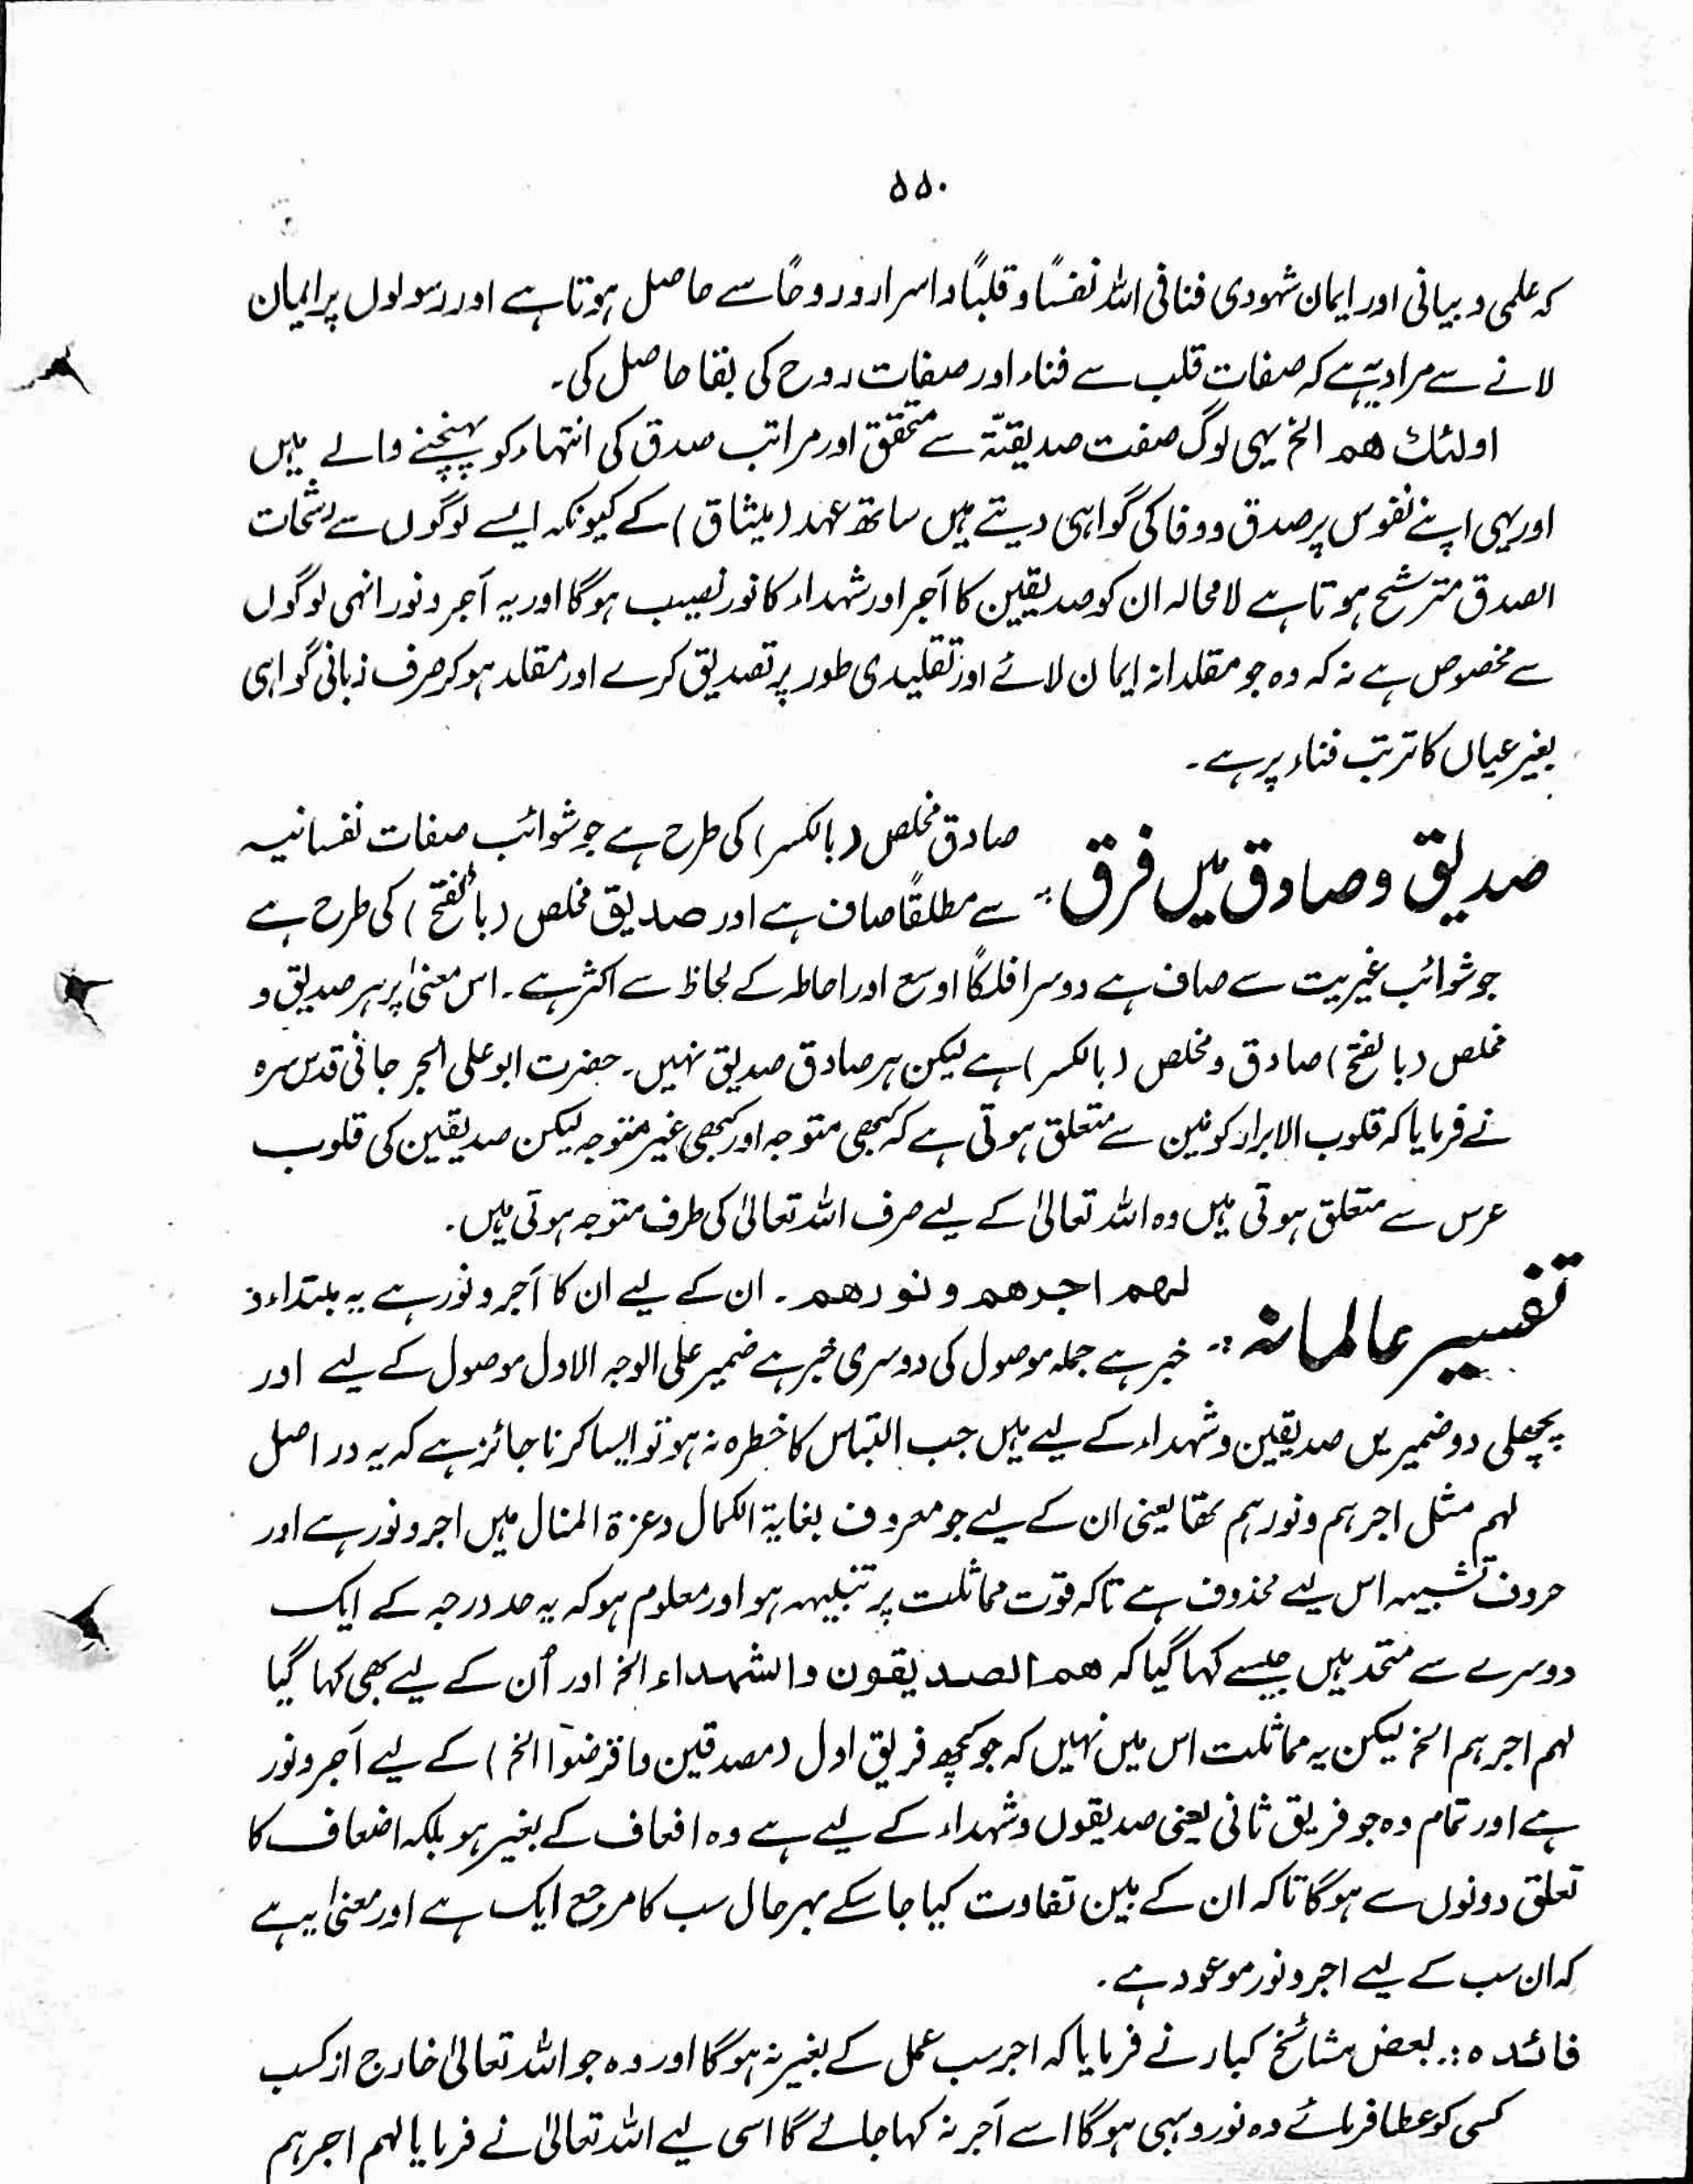 ۵۵۰
کہ علمی و بیانی اور ایمان شہودی فنا فی اللہ نفسًا و قلبًا و اسرار و روحًا سے حاصل ہوتا ہے اور رسولوں پر ایمان
لانے سے مراد یہ ہے کہ صفات قلب سے فناء اور صفات روح کی بقا حاصل کی۔
اولئك هم الخ یہی لوگ صفت صدیقیّۃ سے متحقق اور مراتب صدق کی انتہاء کو پہنچنے والے ہیں
اور یہی اپنے نفوس پر صدق و وفا کی گواہی دیتے ہیں ساتھ عہد (میثاق) کے کیونکہ ایسے لوگوں سے رشحات
الصدق مترشح ہوتا ہے لامحالہ ان کو صدیقین کا اَجر اور شہداء کا نور نصیب ہوگا اور یہ اَجر و نور انہی لوگوں
سے مخصوص ہے نہ کہ وہ جو مقلدانہ ایمان لائے اور تقلیدی طور پر تصدیق کرے اور مقلد ہو کر صرف زبانی گواہی
بغیر عیاں کا ترتب فناء پر ہے۔
صدیق و صادق میں فرق :۔ صادق مخلص (بالکسر) کی طرح ہے جو شوائب صفات نفسانیہ
سے مطلقًا صاف ہے اور صدیق مخلص (بالفتح) کی طرح ہے
جو شوائب غیریت سے صاف ہے دوسرا فلکًا اوسع اور احاطہ کے لحاظ سے اکثر ہے۔ اس معنیٰ پر ہر صدیق و
مخلص (بالفتح) صادق و مخلص (بالکسر) ہے لیکن ہر صادق صدیق نہیں۔ حضرت ابو علی الجرجانی قدس سرہ
نے فرمایا کہ قلوب الابرار کونین سے متعلق ہوتی ہے کہ کبھی متوجہ اور کبھی غیر متوجہ لیکن صدیقین کی قلوب
عرس سے متعلق ہوتی ہیں وہ اللہ تعالیٰ کے لیے صرف اللہ تعالیٰ کی طرف متوجہ ہوتی ہیں۔
تفسیر عالمانہ :۔ لهم اجرهم و نورهم۔ ان کے لیے ان کا اَجر و نور ہے یہ مبتداء و
خبر ہے جملہ موصول کی دوسری خبر ہے ضمیر علی الوجہ الاول موصول کے لیے اور
پچھلی دو ضمیریں صدیقین و شہداء کے لیے ہیں جب التباس کا خطرہ نہ ہو تو ایسا کرنا جائز ہے کہ یہ در اصل
لہم مثل اجرہم و نورہم تھا یعنی ان کے لیے جو معروف بغایۃ الکمال و عزۃ المنال میں اجر و نور ہے اور
حروف تشبیہ اس لیے محذوف ہے تاکہ قوت مماثلت پر تنبیہہ ہو اور معلوم ہو کہ یہ حد درجہ کے ایک
دوسرے سے متحد ہیں جیسے کہا گیا کہ هم الصديقون والشهداء الخ اور اُن کے لیے بھی کہا گیا
لہم اجرہم الخ لیکن یہ مماثلت اس میں نہیں کہ جو کچھ فریق اول (مصدقین واقرضوا الخ) کے لیے اَجر و نور
ہے اور تمام وہ جو فریق ثانی یعنی صدیقوں و شہداء کے لیے ہے وہ افعاف کے بغیر ہو بلکہ اضعاف کا
تعلق دونوں سے ہوگا تاکہ ان کے بین تفاوت کیا جا سکے بہرحال سب کا مرجع ایک ہے اور معنیٰ یہ ہے
کہ ان سب کے لیے اجر و نور موعود ہے۔
فائدہ :۔ بعض مشائخ کبار نے فرمایا کہ اجر سب عمل کے بغیر نہ ہوگا اور وہ جو اللہ تعالیٰ خارج از کسب
کسی کو عطا فرمائے وہ نور وہبی ہوگا اسے اَجر نہ کہا جائے گا اسی لیے اللہ تعالیٰ نے فرمایا لہم اجرہم